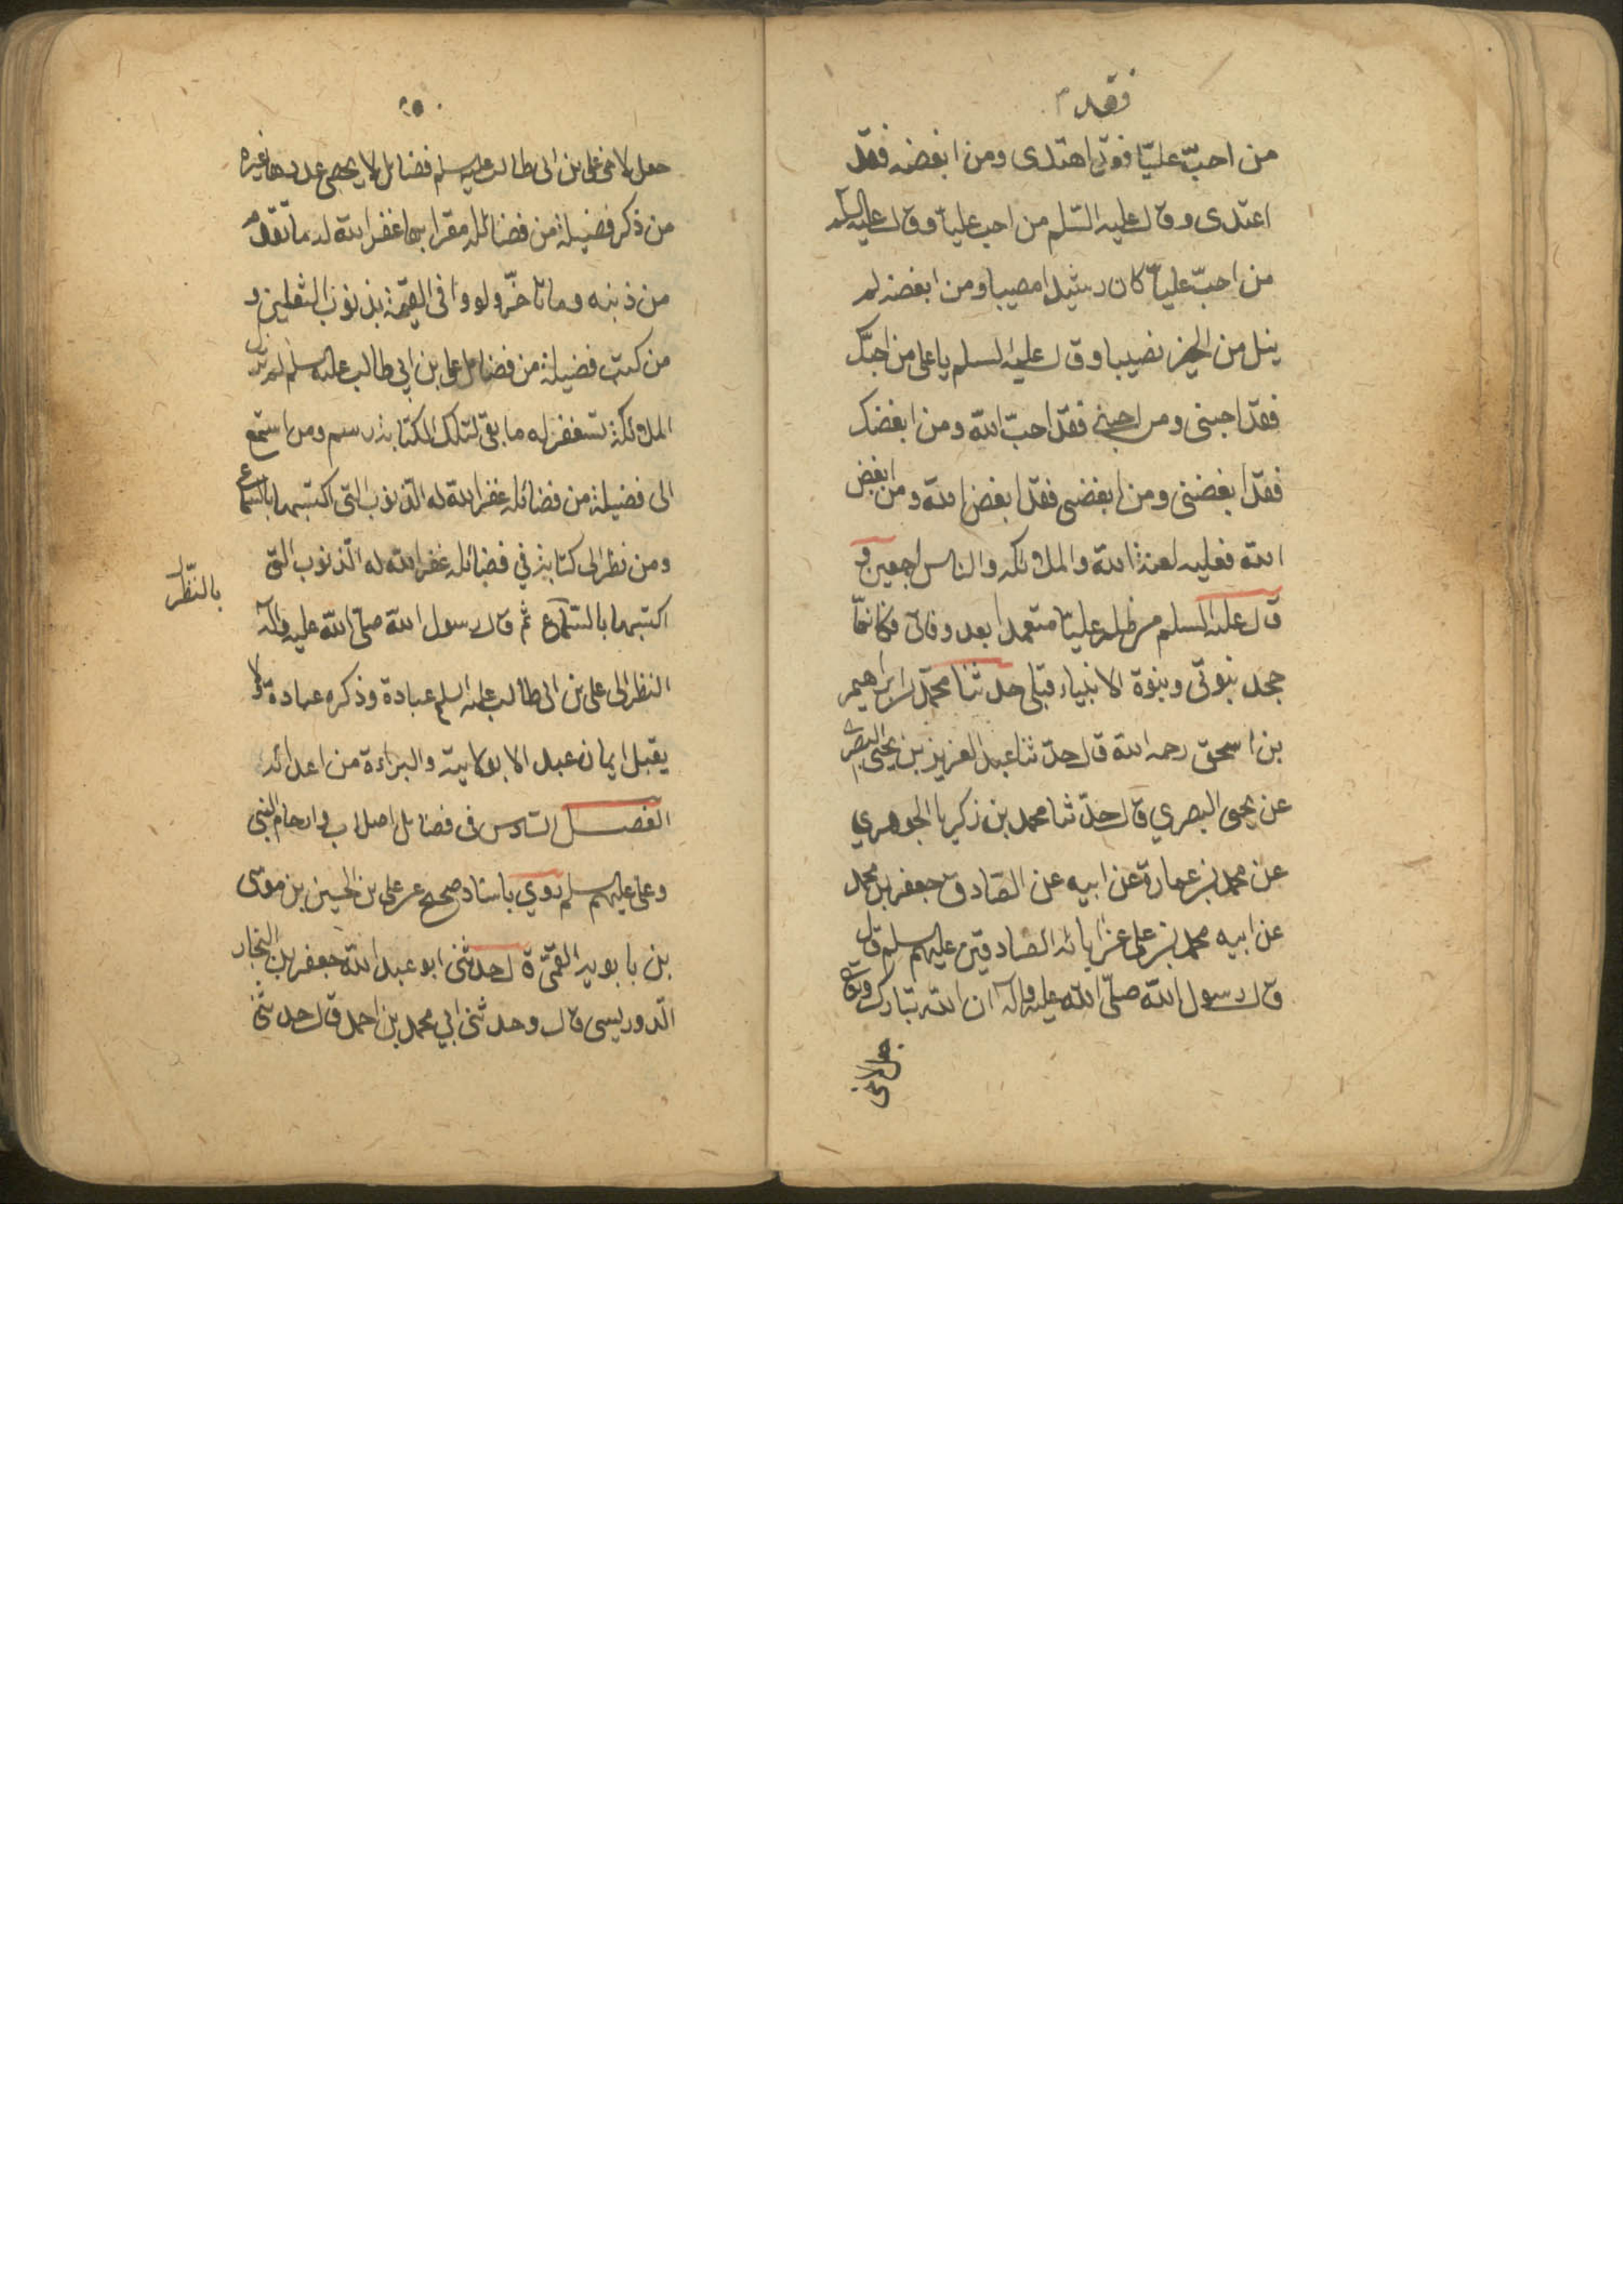 فقد م
من احبّ عليّا فقد اهتدى ومن ابغضه فقد
اعتدى وقال عليه السّلم من احب عليا وقال عليه السلم
من احبّ عليا كان رشيدا مصيبا ومن ابغضه لم
ينل من الخير نصيبا وقال عليه السلم يا على من احبّك
فقد احبنى ومن احبنى فقد احبّ الله ومن ابغضك
فقد ابغضنى ومن ابغضنى فقد ابغض الله ومن ابغض
الله فعليه لعنة الله والملائكة والناس اجمعين و
قال عليه السلم من ظلم عليّا متعمدا بعد وفاتى فكانمّا
جحد بنبوتى ونبوة الانبياء قبلى حدثنا محمد بن ابراهيم
بن اسحق رحمه الله قال حدّثنا عبد العزيز بن يحيى البصرى
عن يحيى البصري قال حدّثنا محمد بن زكريا الجوهري
عن محمد بن عمارة عن ابيه عن الصّادق جعفر بن محمد
عن ابيه محمد بن على عن ابائه الصادقين عليهم السلم قال
قال رسول الله صلّى الله عليه وآله ان الله تبارك وتعالى
جعل لاخى
٥٠
جعل لاخى على بن ابى طالب عليه السلم فضائل لا يحصى عددها غيره
من ذكر فضيلة من فضائله مقرا بها غفر الله له ما تقدّم
من ذنبه وما تاخّر ولو وافى القيمة بذنوب الثقلين و
من كتب فضيلة من فضائل على بن ابي طالب عليه السلم لم تزل
الملائكة تستغفر له ما بقى لتلك الكتابة رسم ومن استمع
الى فضيلة من فضائله غفر الله له الذنوب التى اكتسبها بالسّماع
ومن نظر الى كتابة في فضائله غفر الله له الّذنوب التى
بالنّظر
اكتسبها بالسّماع ثم قال رسول الله صلّى الله عليه وآله
النظر الى على بن ابى طالب عليه السلم عبادة وذكره عبادة ولا
يقبل ايمان عبد الا بولايته والبراءة من اعدائه
الفصل السّادس فى فضائل اصلاب وارحام النبى
وعلى عليهم السلم روي باسناد صحيح عن على بن الحسين بن موسى
بن بابويه القمّى قال حدثنى ابو عبد الله جعفر بن النجار
الّدوريسى قال وحدثنى ابي محمد بن احمد قال حدثنى